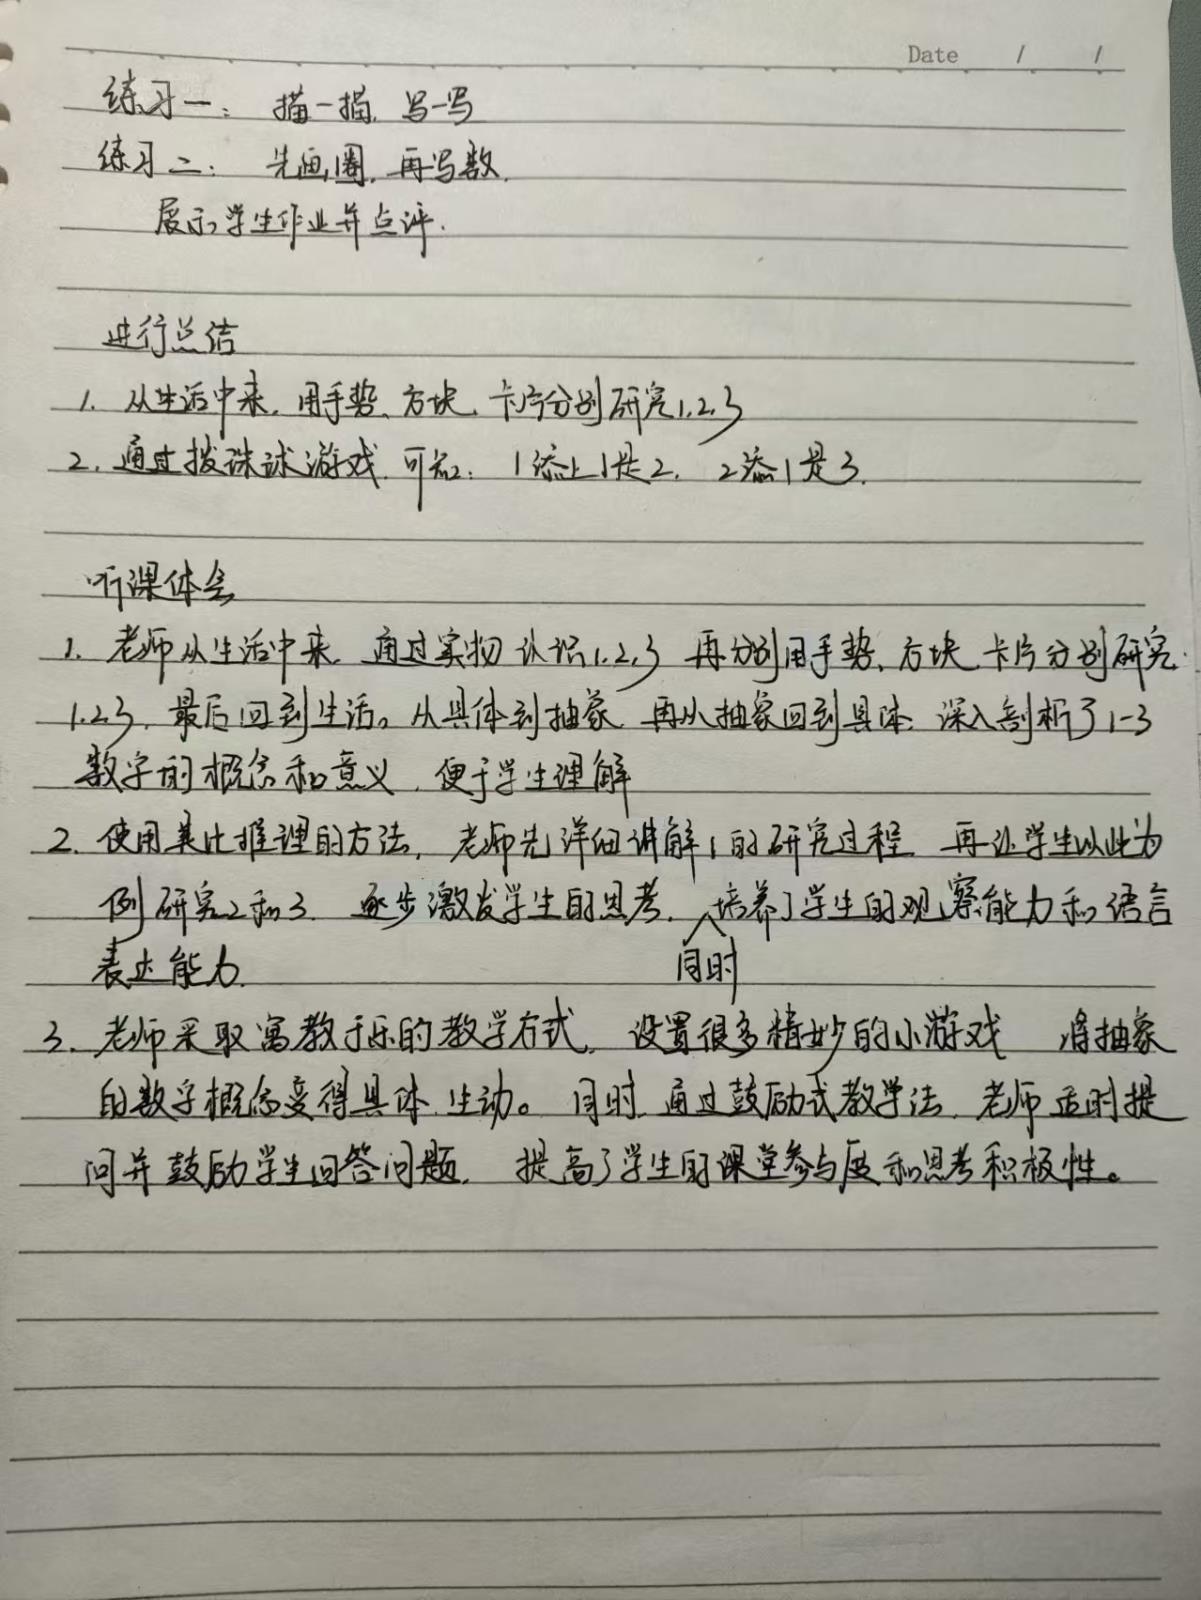 Date / /
练习一：描一描，写一写
练习二：先画圈，再写数.
展示学生作业并点评.
进行总结
1. 从生活中来，用手势、方块、卡片分别研究1.2.3
2. 通过拨珠球游戏，可知：1添上1是2，2添1是3.
听课体会
1. 老师从生活中来，通过实物认识1.2.3 再分别用手势、方块、卡片分别研究
1.2.3，最后回到生活。从具体到抽象，再从抽象回到具体，深入剖析了1-3
数字的概念和意义，便于学生理解
2. 使用类比推理的方法，老师先详细讲解1的研究过程，再让学生以此为
例研究2和3，逐步激发学生的思考，同时培养了学生的观察能力和语言
表达能力.
3. 老师采取寓教于乐的教学方式，设置很多精妙的小游戏 将抽象
的数字概念变得具体、生动。同时，通过鼓励式教学法，老师适时提
问并鼓励学生回答问题，提高了学生的课堂参与度和思考积极性。